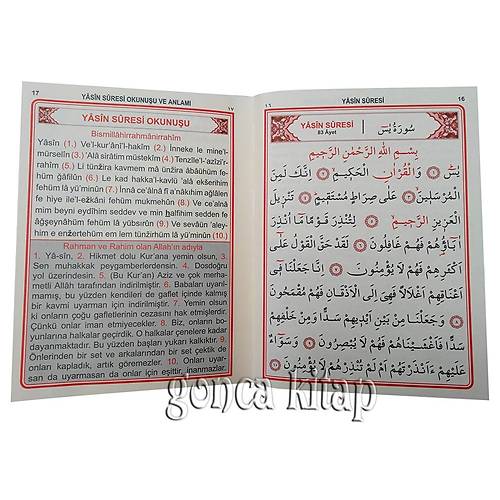 17
YÂSÎN SÛRESİ OKUNUŞU VE ANLAMI
١٧
YÂSÎN SÛRESİ OKUNUŞU
Bismillâhirrahmânirrahîm
Yâsîn (1.) Ve'l-kur'âni'l-hakîm (2.) İnneke le mine'l-
mürselîn (3.) 'Alâ sirâtim müstekîm (4.) Tenzîle'l-'azîzi'r-
rahîm (5.) Li tünzira kavmem mâ ünzira âbâühüm fe-
hüm ğâfilûn (6.) Le kad hakka'l-kavlü 'alâ ekserihim
fehüm lâ yü'minûn (7.) İnnâ ce'alnâ fî a'nâkıhim ağlâlen
fe hiye ile'l-ezkâni fehüm mukmehûn (8.) Ve ce'alnâ
mim beyni eydîhim seddev ve min halfihim sedden fe
ağşeynâhüm fehüm lâ yübsırûn (9.) Ve sevâün 'aley-
him e enzertehüm em lem tünzirhüm lâ yü'minûn (10.)
Rahman ve Rahim olan Allah'ın adıyla
1. Yâ-sîn, 2. Hikmet dolu Kur'ana yemin olsun, 3.
Sen muhakkak peygamberlerdensin. 4. Dosdoğru
yol üzerindesin. 5. (Bu Kur'an) Aziz ve çok merha-
metli Allah tarafından indirilmiştir. 6. Babaları uyarıl-
mamış, bu yüzden kendileri de gaflet içinde kalmış
bir kavmi uyarman için indirilmiştir. 7. Yemin olsun
ki onların çoğu gafletlerinin cezasını hak etmişlerdir.
Çünkü onlar iman etmeyecekler. 8. Biz, onların bo-
yunlarına halkalar geçirdik. O halkalar çenelere kadar
dayanmaktadır. Bu yüzden başları yukarı kalkıktır. 9.
Önlerinden bir set ve arkalarından bir set çektik de
onları kapladık, artık göremezler. 10. Onları uyar-
san da uyarmasan da onlar için eşittir, inanmazlar.
١٦
YÂSÎN SÛRESİ
16
YÂSÎN SÛRESİ
83 Âyet
سُورَةُ يٰسٓ
بِسْمِ اللّٰهِ الرَّحْمٰنِ الرَّحِيمِ
يٰسٓ ﴿١﴾ وَالْقُرْاٰنِ الْحَكِيمِ ﴿٢﴾ اِنَّكَ لَمِنَ
الْمُرْسَلِينَ ﴿٣﴾ عَلٰى صِرَاطٍ مُسْتَقِيمٍ ﴿٤﴾ تَنْزِيلَ
الْعَزِيزِ الرَّحِيمِ ﴿٥﴾ لِتُنْذِرَ قَوْمًا مَٓا اُنْذِرَ
اٰبَٓاؤُهُمْ فَهُمْ غَافِلُونَ ﴿٦﴾ لَقَدْ حَقَّ الْقَوْلُ عَلٰٓى
اَكْثَرِهِمْ فَهُمْ لَا يُؤْمِنُونَ ﴿٧﴾ اِنَّا جَعَلْنَا فِٓى
اَعْنَاقِهِمْ اَغْلَالًا فَهِىَ اِلَى الْاَذْقَانِ فَهُمْ مُقْمَحُونَ
﴿٨﴾ وَجَعَلْنَا مِنْ بَيْنِ اَيْدِيهِمْ سَدًّا وَمِنْ خَلْفِهِمْ
سَدًّا فَاَغْشَيْنَاهُمْ فَهُمْ لَا يُبْصِرُونَ ﴿٩﴾ وَسَوَٓاءٌ
عَلَيْهِمْ ءَاَنْذَرْتَهُمْ اَمْ لَمْ تُنْذِرْهُمْ لَا يُؤْمِنُونَ ﴿١٠﴾
gonca kitap